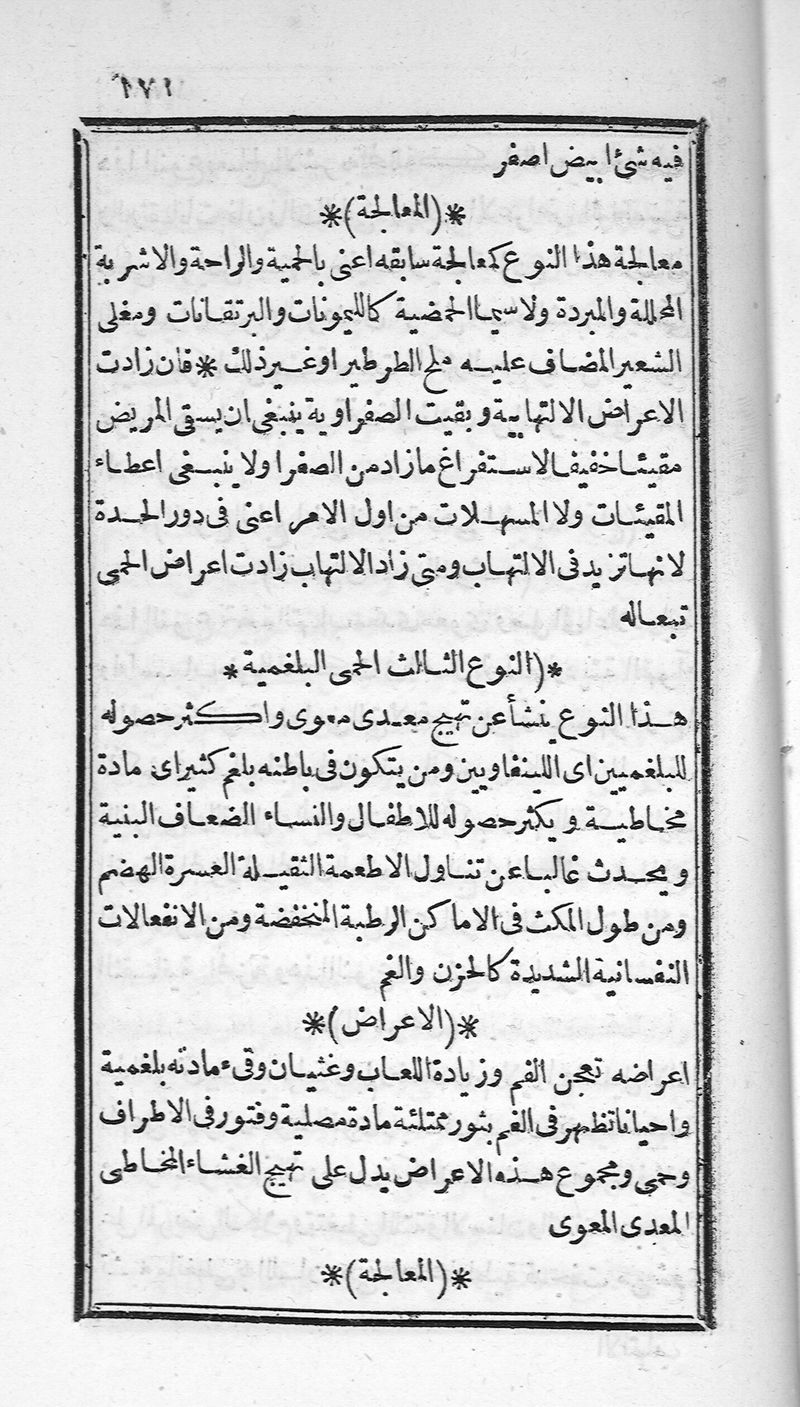 ١٧١
فيه شئ ابيض اصفر
*(المعالجة)*
معالجة هذا النوع كمعالجة سابقه اعنى بالحمية والراحة والاشربة
المحللة والمبردة ولاسيما الحمضية كالليمونات والبرتقانات ومغلى
الشعير المضاف عليه ملح الطرطير اوغير ذلك * فان زادت
الاعراض الالتهابية وبقيت الصفراوية ينبغى ان يسقى المريض
مقيئا خفيفا لاستفراغ مازاد من الصفرا ولا ينبغى اعطاء
المقيئات ولا المسهلات من اول الامر اعنى فى دور الحدة
لانها تزيد فى الالتهاب ومتى زاد الالتهاب زادت اعراض الحمى
تبعاله
*(النوع الثالث الحمى البلغمية*
هذا النوع ينشأ عن تهيج معدى معوى واكثر حصوله
للبلغميين اى اللينفاويين ومن يتكون فى باطنه بلغم كثير اى مادة
مخاطية ويكثر حصوله للاطفال والنساء الضعاف البنية
ويحدث غالبا عن تناول الاطعمة الثقيلة العسرة الهضم
ومن طول المكث فى الاماكن الرطبة المنخفضة ومن الانفعالات
النفسانية الشديدة كالحزن والغم
*(الاعراض)*
اعراضه تعجن الفم وزيادة اللعاب وغثيان وقىء مادته بلغمية
واحيانا تظهر فى الفم بثور ممتلئة مادة مصلية وفتور فى الاطراف
وحمى ومجموع هذه الاعراض يدل على تهيج الغشاء المخاطى
المعدى المعوى
*(المعالجة)*